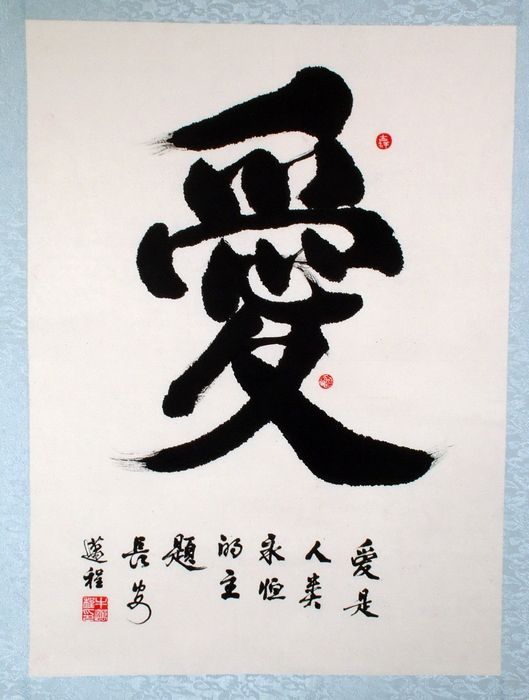 愛
愛是
人类
永恒
的主
題
長安
程